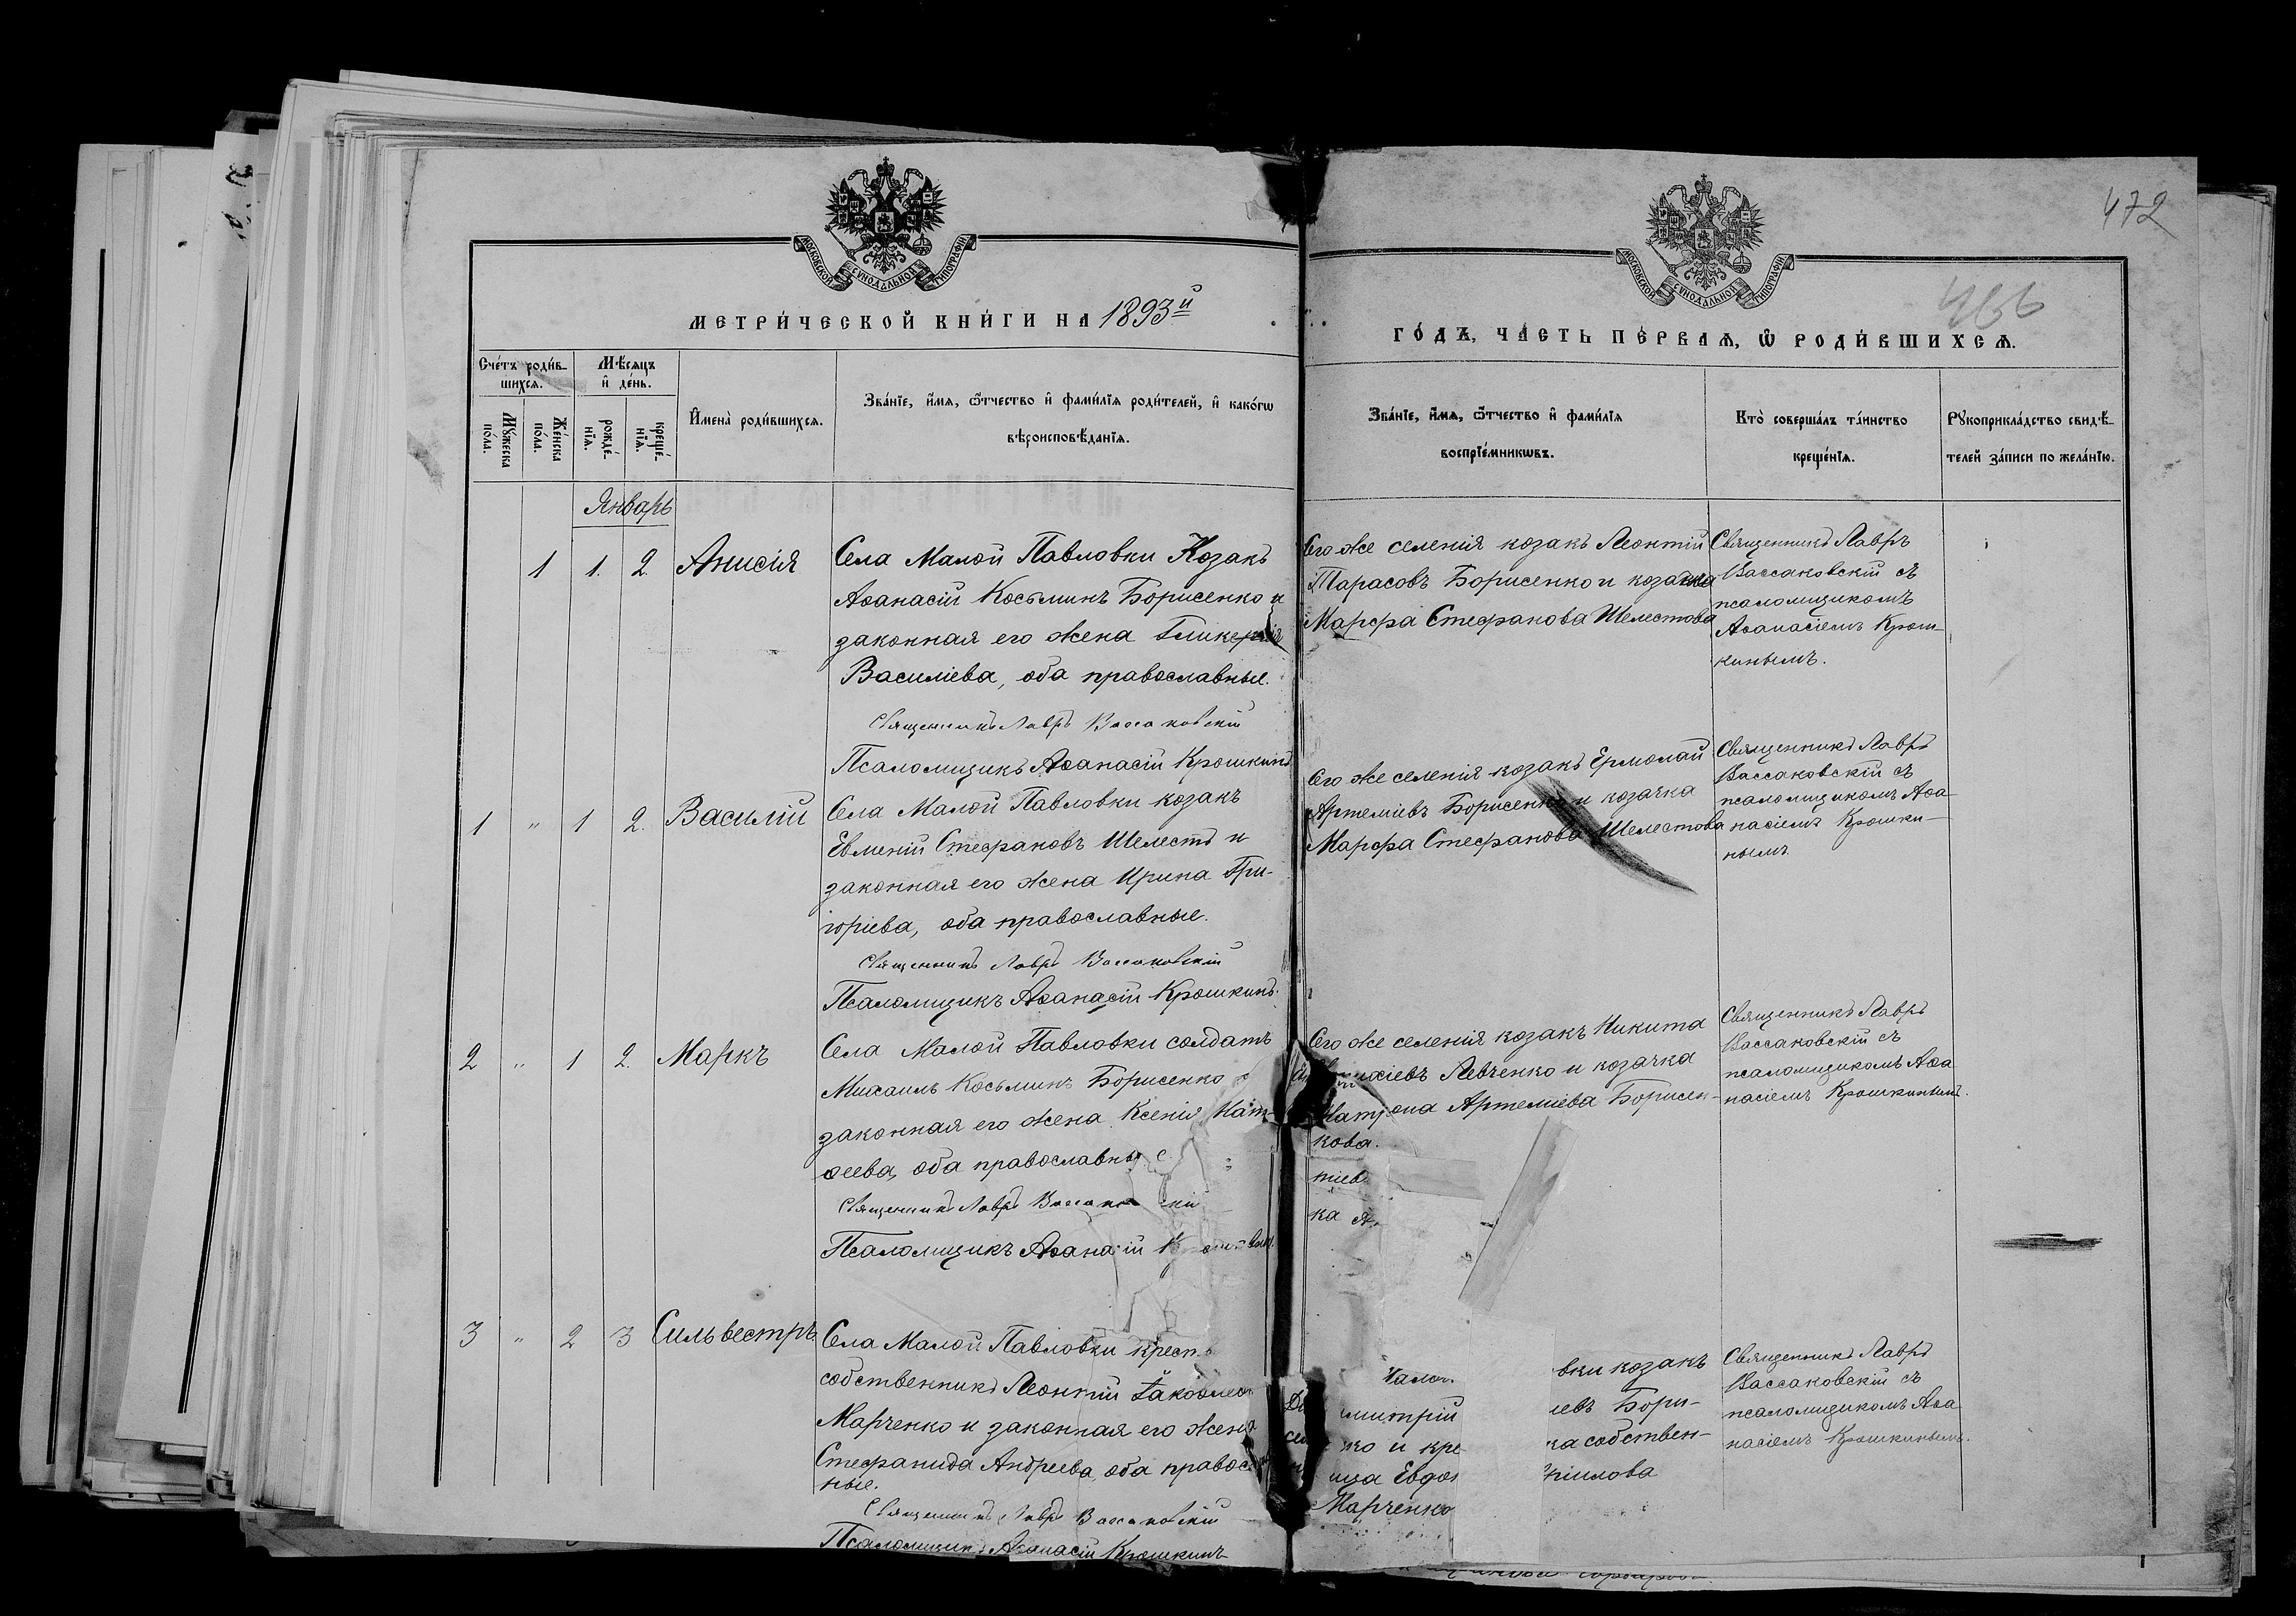 472
466
МОСКОВСКОЙ СѴНОДАЛЬНОЙ ТИПОГРАФІИ
МОСКОВСКОЙ СѴНОДАЛЬНОЙ ТИПОГРАФІИ
МЕТРИ́ЧЕСКОЙ КНИ́ГИ НА 1893й
ГО́ДЪ, ЧА́СТЬ ПЕ́РВАѦ, Ѿ РОДИ́ВШИХСѦ.
Сче́тъ роди́в-
шихсѧ.
Мѣ́сѧцъ
и҆ де́нь.
Мꙋ́жеска
по́ла.
Же́нска
по́ла.
рожде́-
нїѧ.
креще́-
нїѧ.
И҆мена̀ роди́вшихсѧ.
Зва́нїе, и҆́мѧ, ѻ҆́тчество и҆ фами́лїѧ роди́телей, и҆ како́гѡ
вѣроисповѣ́данїѧ.
Зва́нїе, и҆́мѧ, ѻ҆́тчество и҆ фами́лїѧ
воспрїе́мникѡвъ.
Кто̀ соверша́лъ та́инство
креще́нїѧ.
Рꙋкоприкла́дство свидѣ́-
телей за́писи по жела́нїю.
Январь
1 1. 2. Анисія
Села Малой Павловки Козакъ
Аѳанасій Косьминъ Борисенко и
законная его жена Гликерія
Василіева, оба православные.
Священникъ Лавръ Вассаковскій
Псаломщикъ Аѳанасій Крошкинъ
Того же селенія козакъ Леонтій
Тарасовъ Борисенко и козачка
Марфа Стефанова Шелестова
Священникъ Лавръ
Вассаковскій съ
псаломщикомъ
Аѳанасіемъ Крош-
кинымъ.
1 " 1 2. Василій
Села Малой Павловки козакъ
Евмений Стефановъ Шелестъ и
законная его жена Ирина Гри-
горіева, оба православные.
Священникъ Лавръ Вассаковскій
Псаломщикъ Аѳанасій Крошкинъ.
Того же селенія козакъ Ермолай
Артеміевъ Борисенко и козачка
Марфа Стефанова Шелестова
Священникъ Лавръ
Вассаковскій съ
псаломщикомъ Аѳа-
насіемъ Крошки-
нымъ.
2 " 1 2. Маркъ
Села Малой Павловки солдатъ
Михаилъ Косьминъ Борисенко
законная его жена Ксенія Мат-
ѳеева, оба православные
Священникъ Лавръ Вассаковскій
Псаломщикъ Аѳанасій
Того же селенія козакъ Никита
Левченко и козачка
Матрона Артеміева Борисен-
кова.
тіев
ка
Священникъ Лавръ
Вассаковскій съ
псаломщикомъ Аѳа
насіемъ Крошкинымъ.
3 " 2 3 Сильвестръ
Села Малой Павловки крест.
собственникъ Леонтій Іаковлев
Марченко и законная его жена
Стефанида Андреева, оба правос
ные.
Священникъ Лавръ Вассаковскій
Псаломщикъ Аѳанасій Крошкинъ
Мало вки козакъ
Димитрій іевъ Бори-
ко и кре ка собствен-
ица Евдо ріилова
Марченко
Священникъ Лавръ
Вассаковскій съ
псаломщикомъ Аѳа
насіемъ Крошкинымъ.